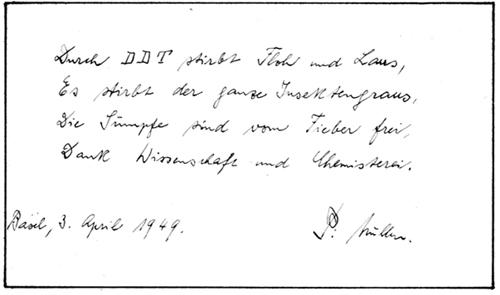 Durch DDT stirbt Floh und Laus,
Es stirbt der ganze Insektengraus,
Die Sümpfe sind vom Fieber frei,
Dank Wissenschaft und Chemisterei.
Basel, 3. April 1949.
P. Müller.